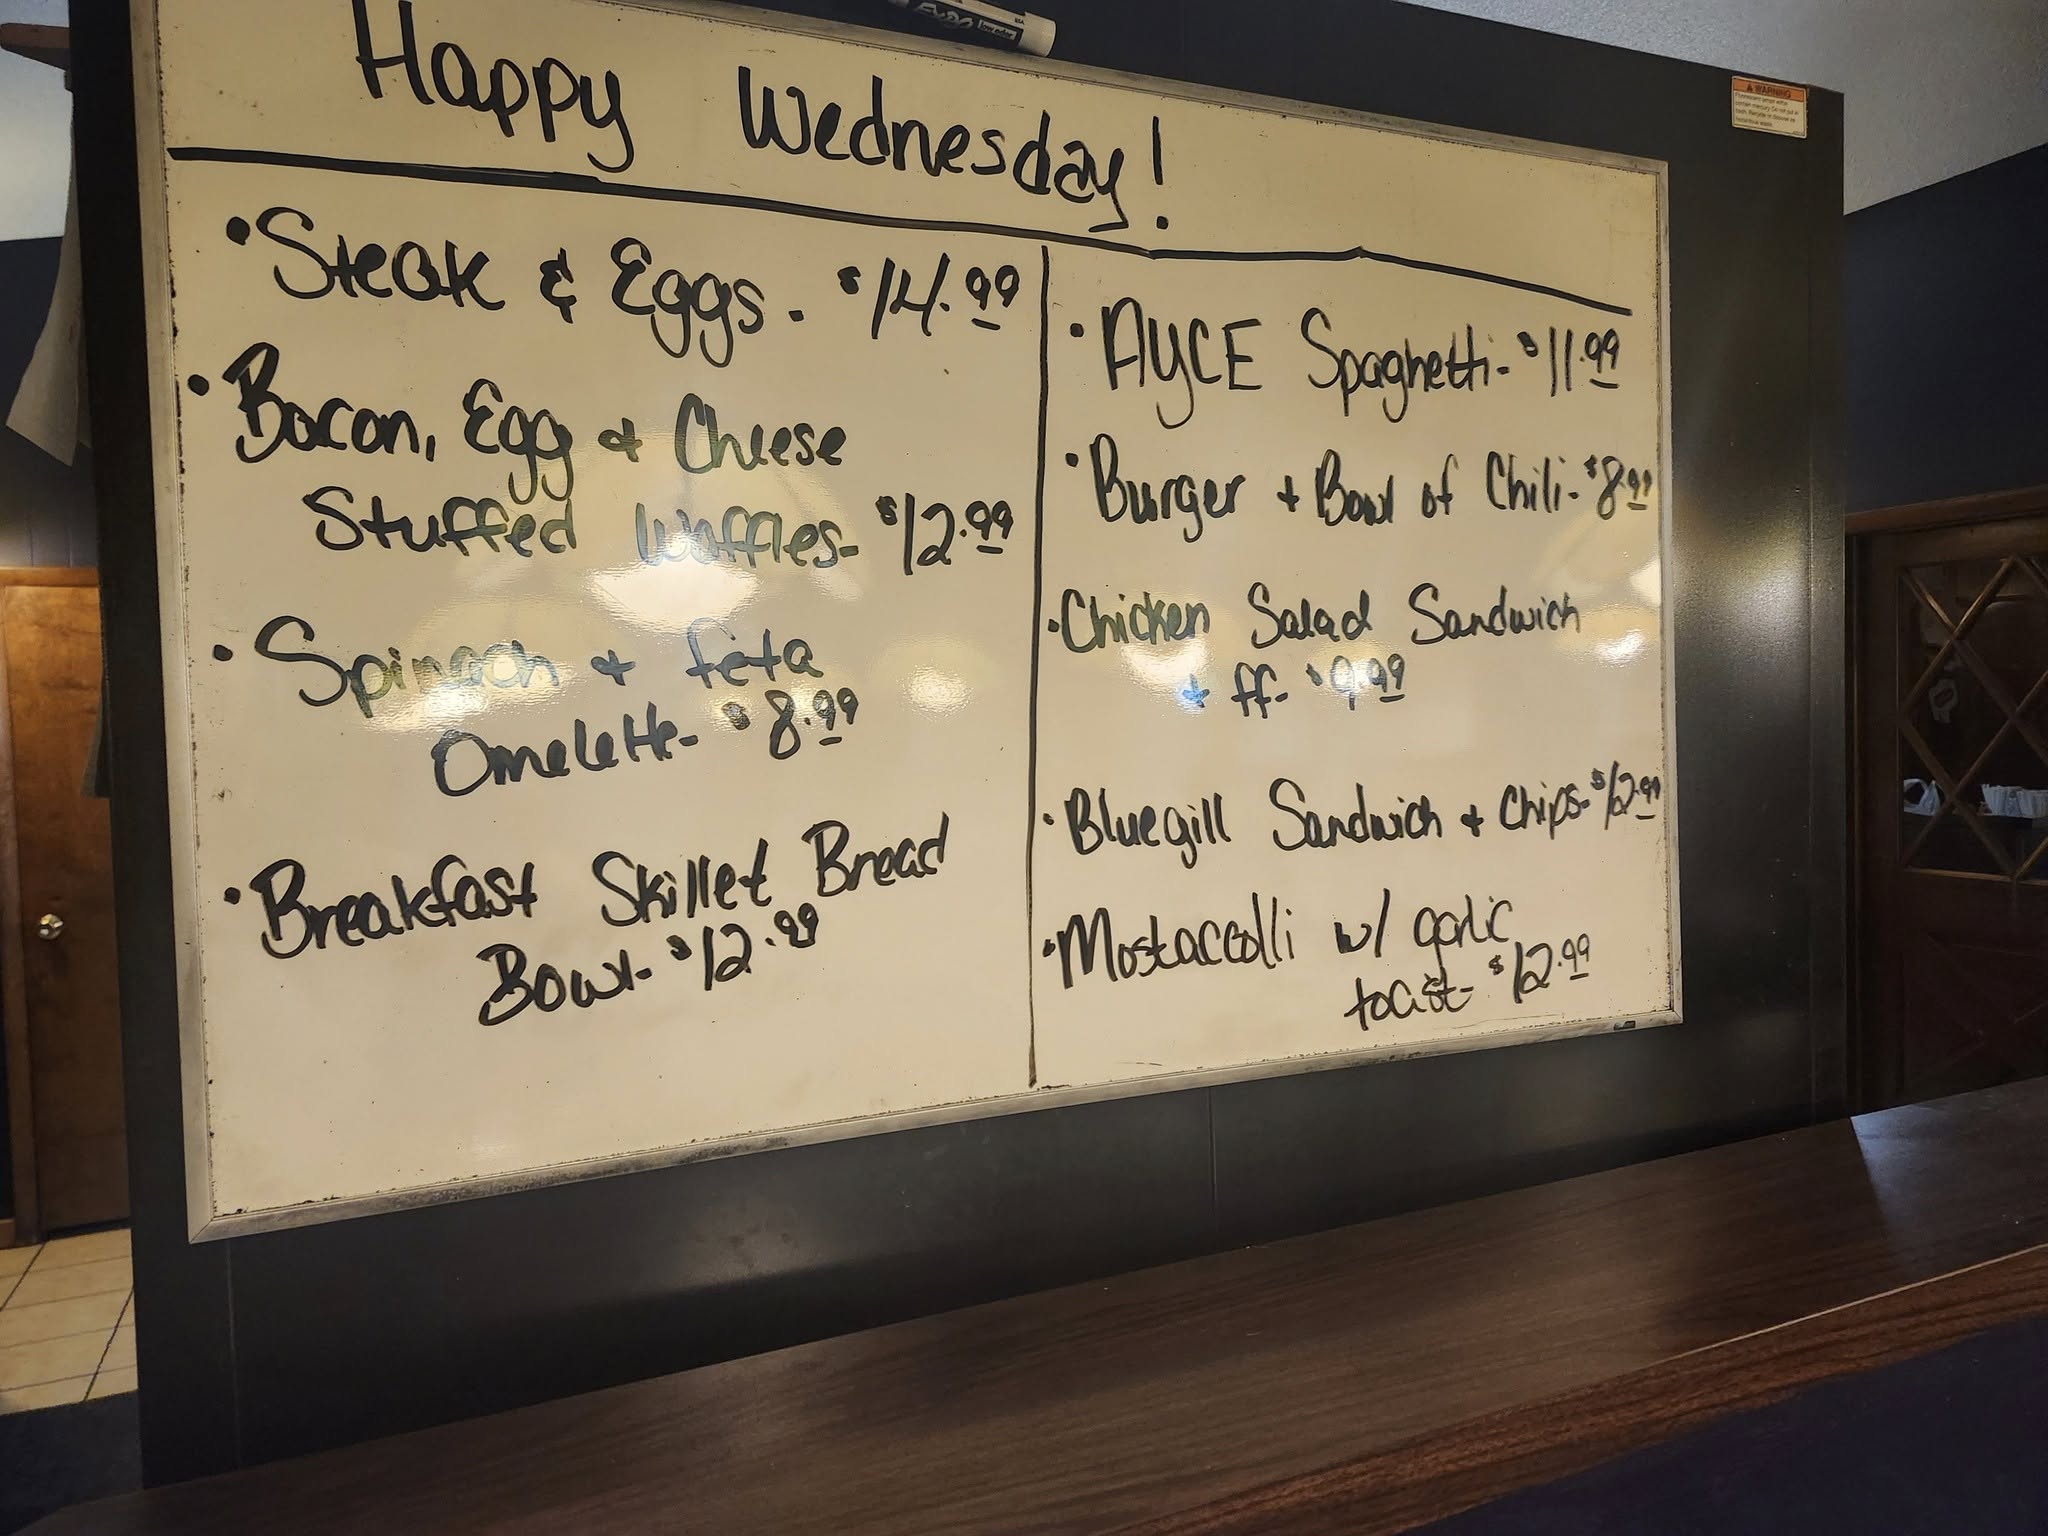 EXPO low odor
USA
Happy Wednesday!
• Steak & Eggs - $14.99
• Bacon, Egg + Cheese
Stuffed Waffles - $12.99
• Spinach + feta
Omelette - $8.99
• Breakfast Skillet Bread
Bowl - $12.99
• AYCE Spaghetti - $11.99
• Burger + Bowl of Chili - $8.99
• Chicken Salad Sandwich
+ ff - $9.99
• Bluegill Sandwich + Chips - $12.99
• Mostaccolli w/ garlic
toast - $12.99
WARNING